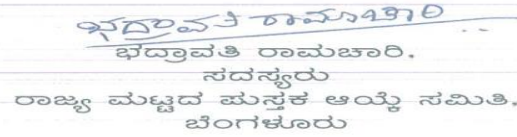 ಭದ್ರಾವತಿ ರಾಮಾಚಾರಿ
ಭದ್ರಾವತಿ ರಾಮಚಾರಿ.
ಸದಸ್ಯರು
ರಾಜ್ಯ ಮಟ್ಟದ ಪುಸ್ತಕ ಆಯ್ಕೆ ಸಮಿತಿ.
ಬೆಂಗಳೂರು